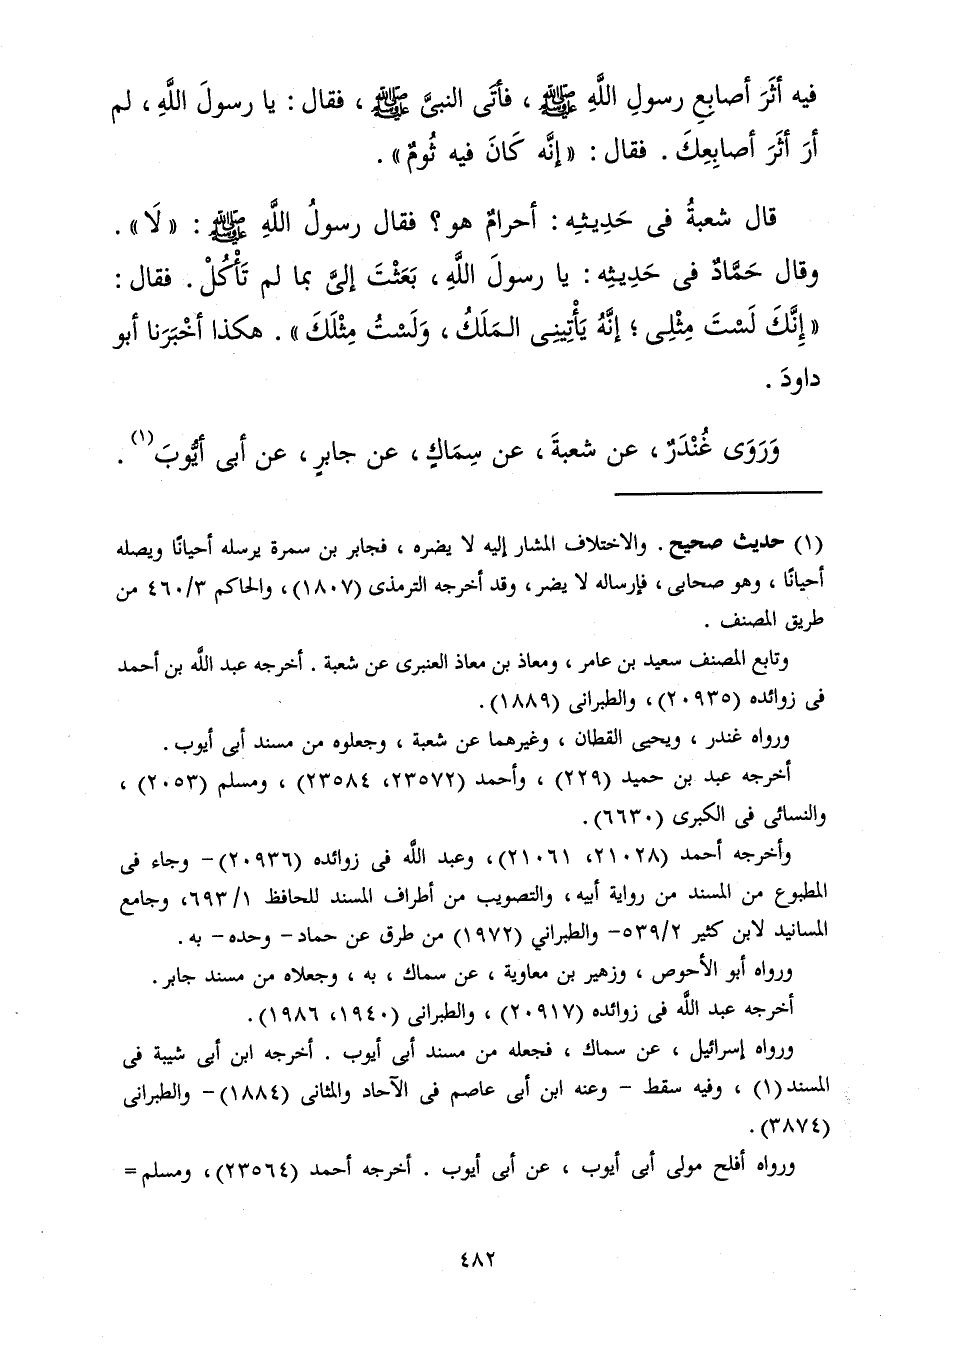 فيه أثَرَ أصابِعِ رسولِ اللَّهِ ﷺ ، فأتَى النبىَّ ﷺ ، فقال : يا رسولَ اللَّهِ ، لم
أرَ أثَرَ أصابِعِكَ . فقال : « إنَّه كَانَ فيه ثُومٌ » .
قال شعبةُ فى حَدِيثِه : أحرامٌ هو ؟ فقال رسولُ اللَّهِ ﷺ : « لَا » .
وقال حَمَّادٌ فى حَدِيثِه : يا رسولَ اللَّهِ ، بَعَثْتَ إلىَّ بما لم تَأْكُلْ . فقال :
« إِنَّكَ لَسْتَ مِثْلِى ؛ إنَّهُ يَأْتِينِى المَلَكُ ، وَلَسْتُ مِثْلَكَ » . هكذا أخْبَرَنا أبو
داودَ .
وَرَوَى غُنْدَرٌ ، عن شعبةَ ، عن سِمَاكٍ ، عن جابرٍ ، عن أبى أيُّوبَ (١) .
(١) حديث صحيح . والاختلاف المشار إليه لا يضره ، فجابر بن سمرة يرسله أحيانًا ويصله
أحيانًا ، وهو صحابى ، فإرساله لا يضر ، وقد أخرجه الترمذى (١٨٠٧) ، والحاكم ٤٦٠/٣ من
طريق المصنف .
وتابع المصنف سعيد بن عامر ، ومعاذ بن معاذ العنبرى عن شعبة . أخرجه عبد اللَّه بن أحمد
فى زوائده (٢٠٩٣٥) ، والطبرانى (١٨٨٩) .
ورواه غندر ، ويحيى القطان ، وغيرهما عن شعبة ، وجعلوه من مسند أبى أيوب .
أخرجه عبد بن حميد (٢٢٩) ، وأحمد (٢٣٥٧٢، ٢٣٥٨٤) ، ومسلم (٢٠٥٣) ،
والنسائى فى الكبرى (٦٦٣٠) .
وأخرجه أحمد (٢١٠٢٨، ٢١٠٦١) ، وعبد اللَّه فى زوائده (٢٠٩٣٦) – وجاء فى
المطبوع من المسند من رواية أبيه ، والتصويب من أطراف المسند للحافظ ٦٩٣/١ ، وجامع
المسانيد لابن كثير ٥٣٩/٢ – والطبراني (١٩٧٢) من طرق عن حماد – وحده – به .
ورواه أبو الأحوص ، وزهير بن معاوية ، عن سماك ، به ، وجعلاه من مسند جابر .
أخرجه عبد اللَّه فى زوائده (٢٠٩١٧) ، والطبرانى (١٩٤٠، ١٩٨٦) .
ورواه إسرائيل ، عن سماك ، فجعله من مسند أبى أيوب . أخرجه ابن أبى شيبة فى
المسند (١) ، وفيه سقط – وعنه ابن أبى عاصم فى الآحاد والمثانى (١٨٨٤) – والطبرانى
(٣٨٧٤) .
ورواه أفلح مولى أبى أيوب ، عن أبى أيوب . أخرجه أحمد (٢٣٥٦٤) ، ومسلم =
٤٨٢